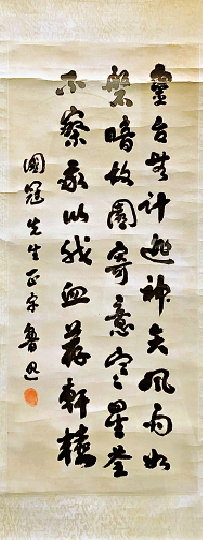 靈台無計逃神矢風雨如
磐暗故園寄意寒星荃
不察我以我血薦軒轅
國冠先生正字魯迅